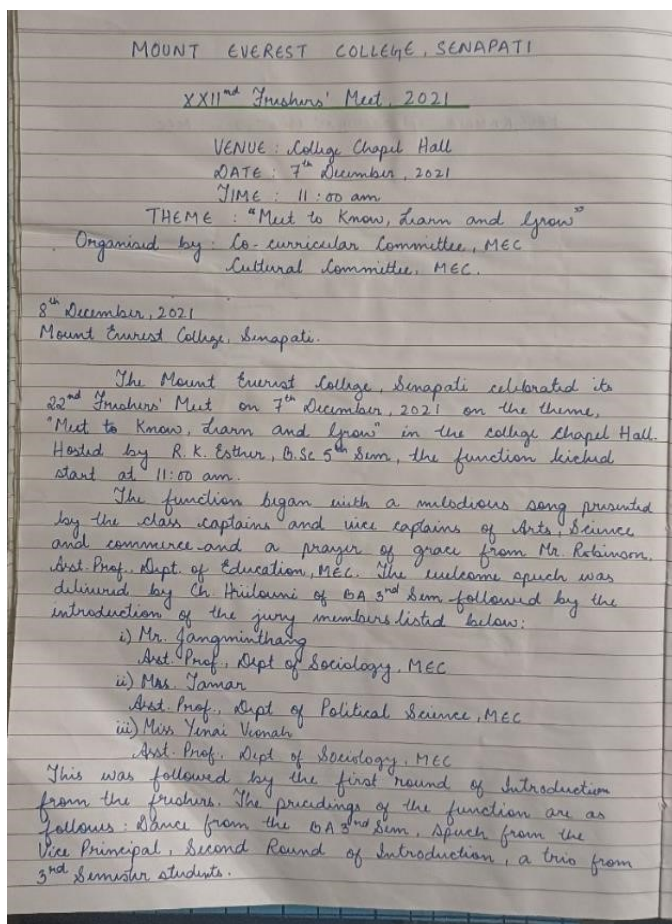 MOUNT EVEREST COLLEGE, SENAPATI
XXIInd Freshers' Meet, 2021
VENUE : College Chapel Hall
DATE : 7th December, 2021
TIME : 11:00 am
THEME : "Meet to Know, Learn and Grow"
Organised by : Co-curricular Committee, MEC
Cultural Committee, MEC.
8th December, 2021
Mount Everest College, Senapati.
The Mount Everest College, Senapati celebrated its
22nd Freshers' Meet on 7th December, 2021 on the theme,
"Meet to Know, Learn and Grow" in the college Chapel Hall.
Hosted by R. K. Esther, B.Sc 5th Sem, the function kicked
start at 11:00 am.
The function began with a melodious song presented
by the class captains and vice captains of Arts, Science
and commerce and a prayer of grace from Mr. Robinson,
Asst. Prof., Dept. of Education, MEC. The welcome speech was
delivered by Ch. Hriilouni of BA 3rd Sem followed by the
introduction of the jury members listed below:
i) Mr. Jangminthang
Asst. Prof., Dept of Sociology, MEC
ii) Mrs. Tamar
Asst. Prof., Dept of Political Science, MEC
iii) Miss Yenai Veonah
Asst. Prof., Dept of Sociology, MEC
This was followed by the first round of Introduction
from the freshers. The precedings of the function are as
follows : Dance from the BA 3rd Sem, Speech from the
Vice Principal, Second Round of Introduction, a trio from
3rd Semester students.